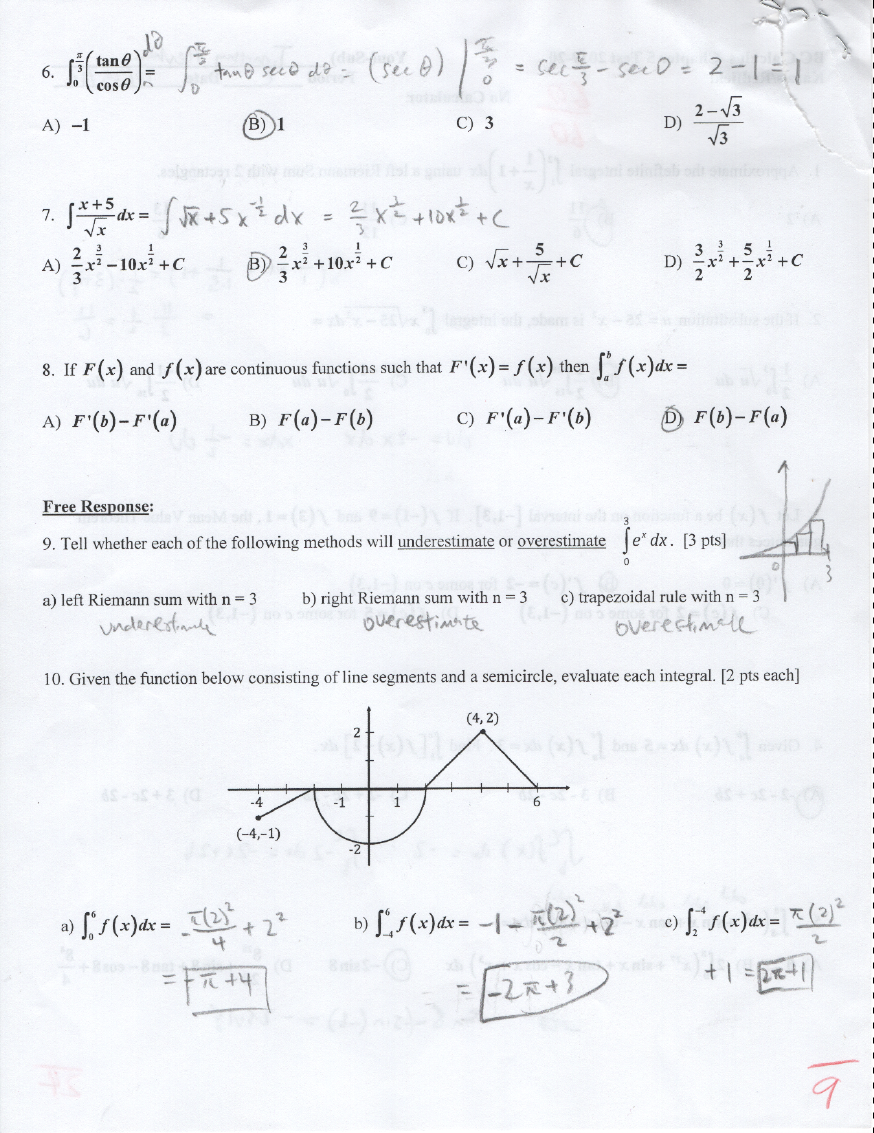 6. ∫₀^(π/3) (tanθ/cosθ) dθ = ∫₀^(π/3) tanθ secθ dθ = (secθ) |₀^(π/3) = sec π/3 − sec 0 = 2 − 1 = 1
A) −1 B) 1 C) 3 D) (2−√3)/√3
7. ∫ (x+5)/√x dx = ∫ √x + 5x^(-1/2) dx = 2/3 x^(3/2) + 10x^(1/2) + C
A) 2/3 x^(3/2) − 10x^(1/2) + C B) 2/3 x^(3/2) + 10x^(1/2) + C C) √x + 5/√x + C D) 3/2 x^(3/2) + 5/2 x^(1/2) + C
8. If F(x) and f(x) are continuous functions such that F'(x) = f(x) then ∫ₐᵇ f(x)dx =
A) F'(b)−F'(a) B) F(a)−F(b) C) F'(a)−F'(b) D) F(b)−F(a)
Free Response:
9. Tell whether each of the following methods will underestimate or overestimate ∫₀³ eˣ dx. [3 pts]
0 3
a) left Riemann sum with n = 3 b) right Riemann sum with n = 3 c) trapezoidal rule with n = 3
underestimate overestimate overestimate
10. Given the function below consisting of line segments and a semicircle, evaluate each integral. [2 pts each]
(4, 2)
2
-4 -1 1 6
(−4,−1)
-2
a) ∫₀⁶ f(x)dx = −π(2)²/4 + 2² b) ∫₋₄⁶ f(x)dx = −1 − π(2)²/2 + 2² c) ∫₂⁻⁴ f(x)dx = π(2)²/2
= −π + 4 = −2π + 3 + 1 = 2π + 1
9